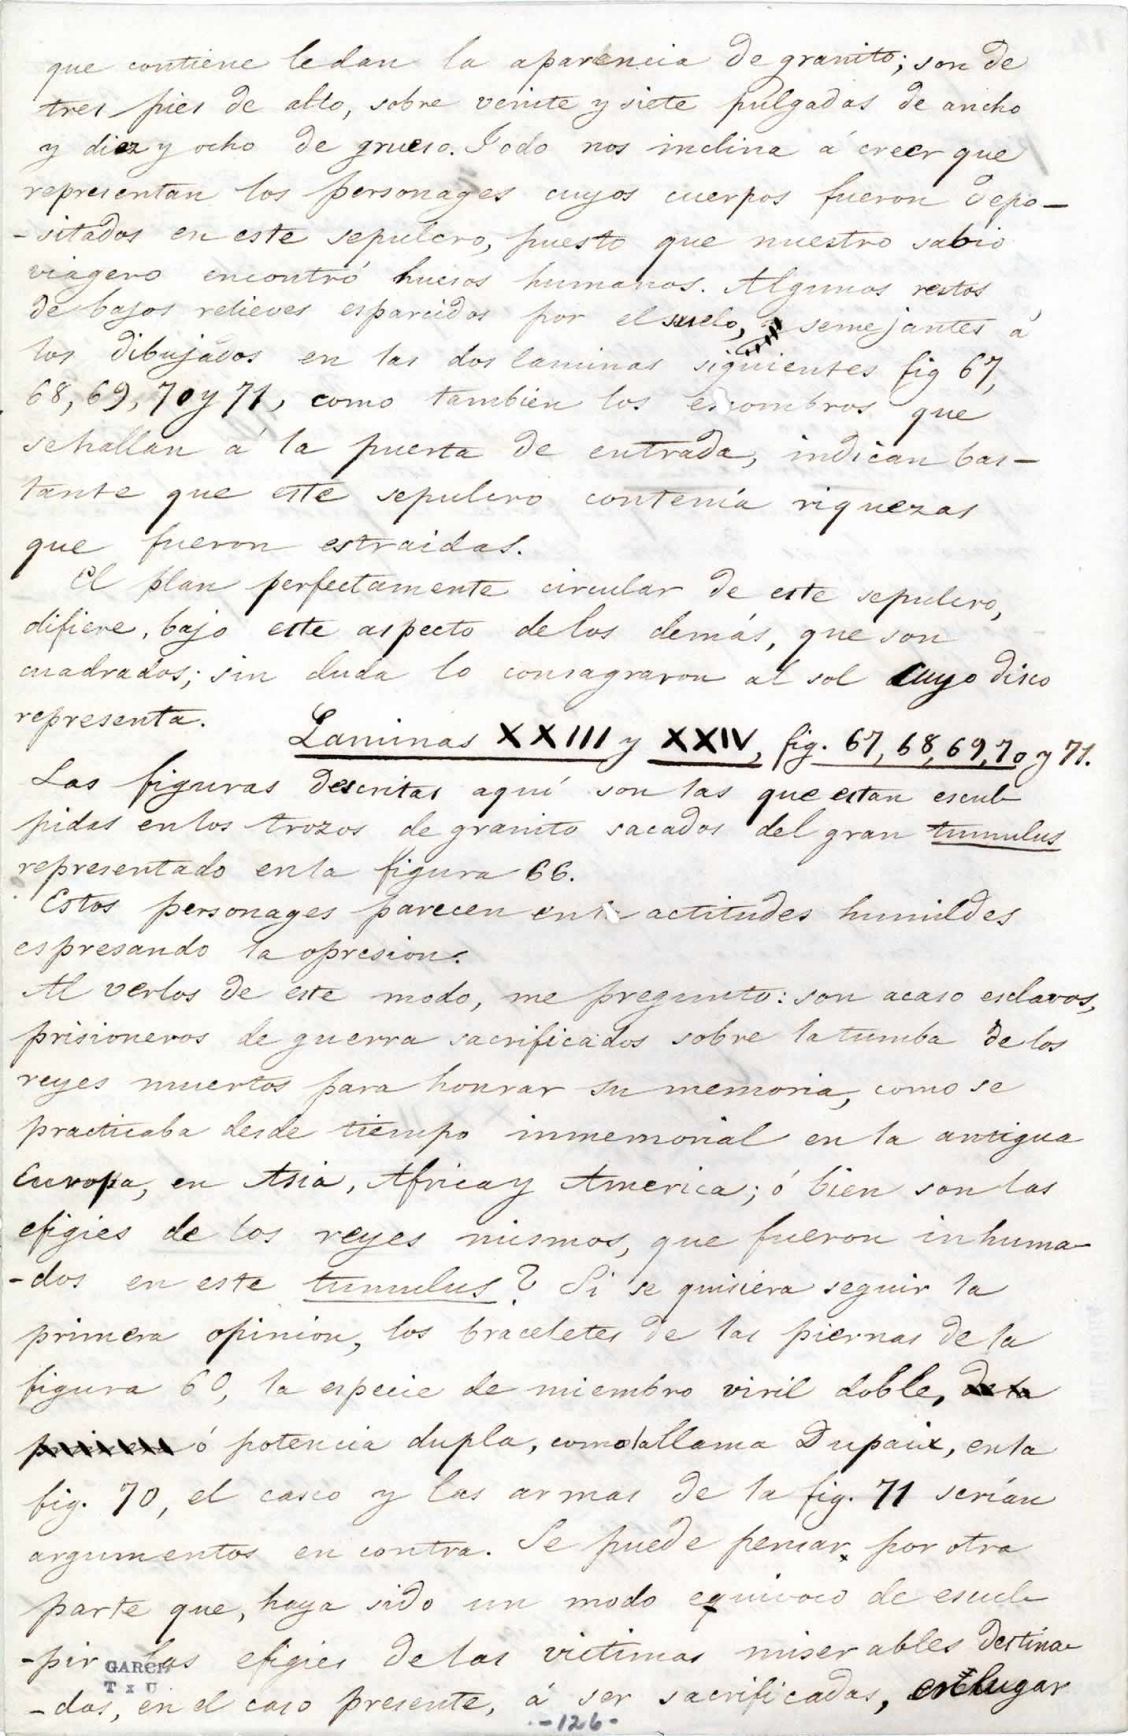 que contiene le dan la aparencia de granito; son de
tres pies de alto, sobre veinte y siete pulgadas de ancho
y diez y ocho de grueso. Todo nos inclina á creer que
representan los personages cuyos cuerpos fueron depo-
-sitados en este sepulcro, puesto que nuestro sabio
viagero encontró huesos humanos. Algunos restos
de bajos relieves esparcidos por el suelo, semejantes á
los dibujados en las dos laminas siguientes fig 67,
68, 69, 70 y 71, como tambien los escombros que
se hallan á la puerta de entrada, indican bas-
tante que este sepulcro contenía riquezas
que fueron estraidas.
El plan perfectamente circular de este sepulcro,
difiere, bajo este aspecto de los demás, que son
cuadrados; sin duda lo consagraron al sol cuyo disco
representa.
Laminas XXIII y XXIV, fig. 67, 68, 69, 70 y 71.
Las figuras descritas aquí son las que estan escul-
pidas en los trozos de granito sacados del gran tumulus
representado en la figura 66.
Estos personages parecen en actitudes humildes
espresando la opresion.
Al verlos de este modo, me pregunto: son acaso esclavos,
prisioneros de guerra sacrificados sobre la tumba de los
reyes muertos para honrar su memoria, como se
practicaba desde tiempo inmemorial en la antigua
Europa, en Asia, Africa y America; ó bien son las
efigies de los reyes mismos, que fueron inhuma-
-dos en este tumulus? Si se quisiera seguir la
primera opinion, los braceletes de las piernas de la
figura 60, la especie de miembro viril doble, de la
ó potencia dupla, como la llama Dupaix, en la
fig. 70, el casco y las armas de la fig. 71 serían
argumentos en contra. Se puede pensar, por otra
parte que, haya sido un modo equivoco de escul-
-pir las efigies de las victimas miserables destina-
-das, en el caso presente, á ser sacrificadas, en lugar
GARCIA
T x U
-126-